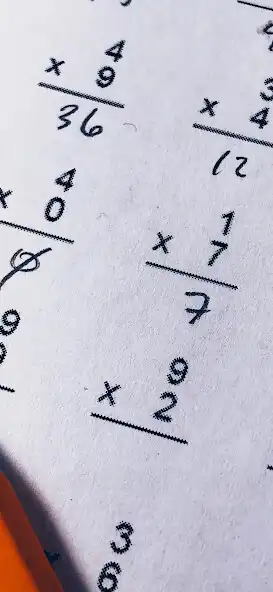 4
x 9
36
3
x 4
12
4
x 0
0
1
x 7
7
9
9
x 2
3
6